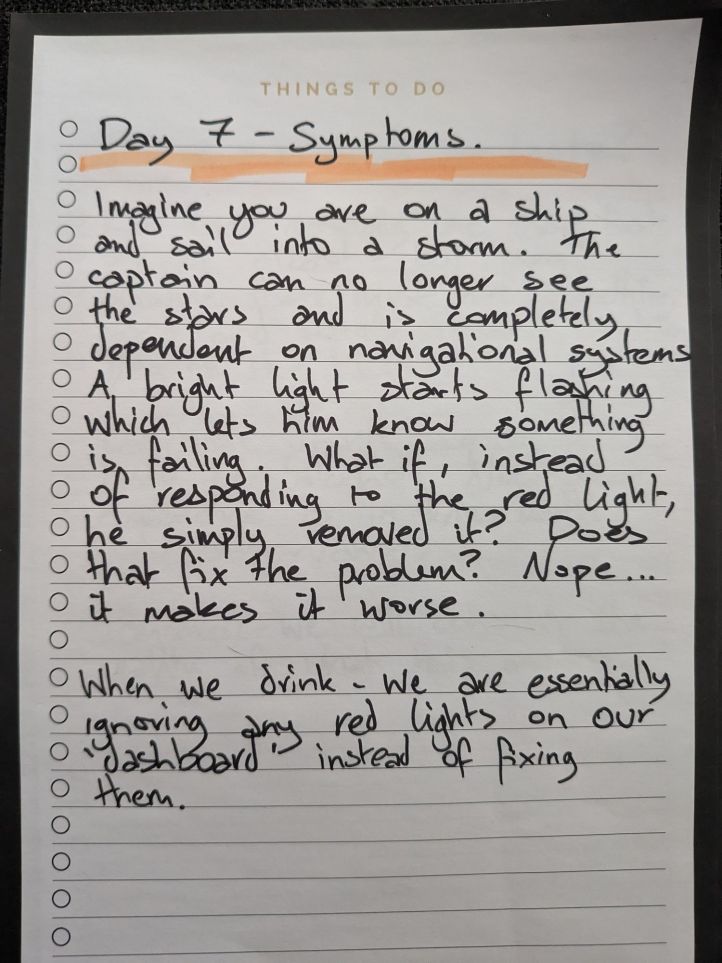 THINGS TO DO
Day 7 - Symptoms.
Imagine you are on a ship
and sail into a storm. The
captain can no longer see
the stars and is completely
dependent on navigational systems
A bright light starts flashing
which lets him know something
is failing. What if, instead
of responding to the red light,
he simply removed it? Does
that fix the problem? Nope...
it makes it worse.
When we drink - we are essentially
ignoring any red lights on our
'dashboard' instead of fixing
them.